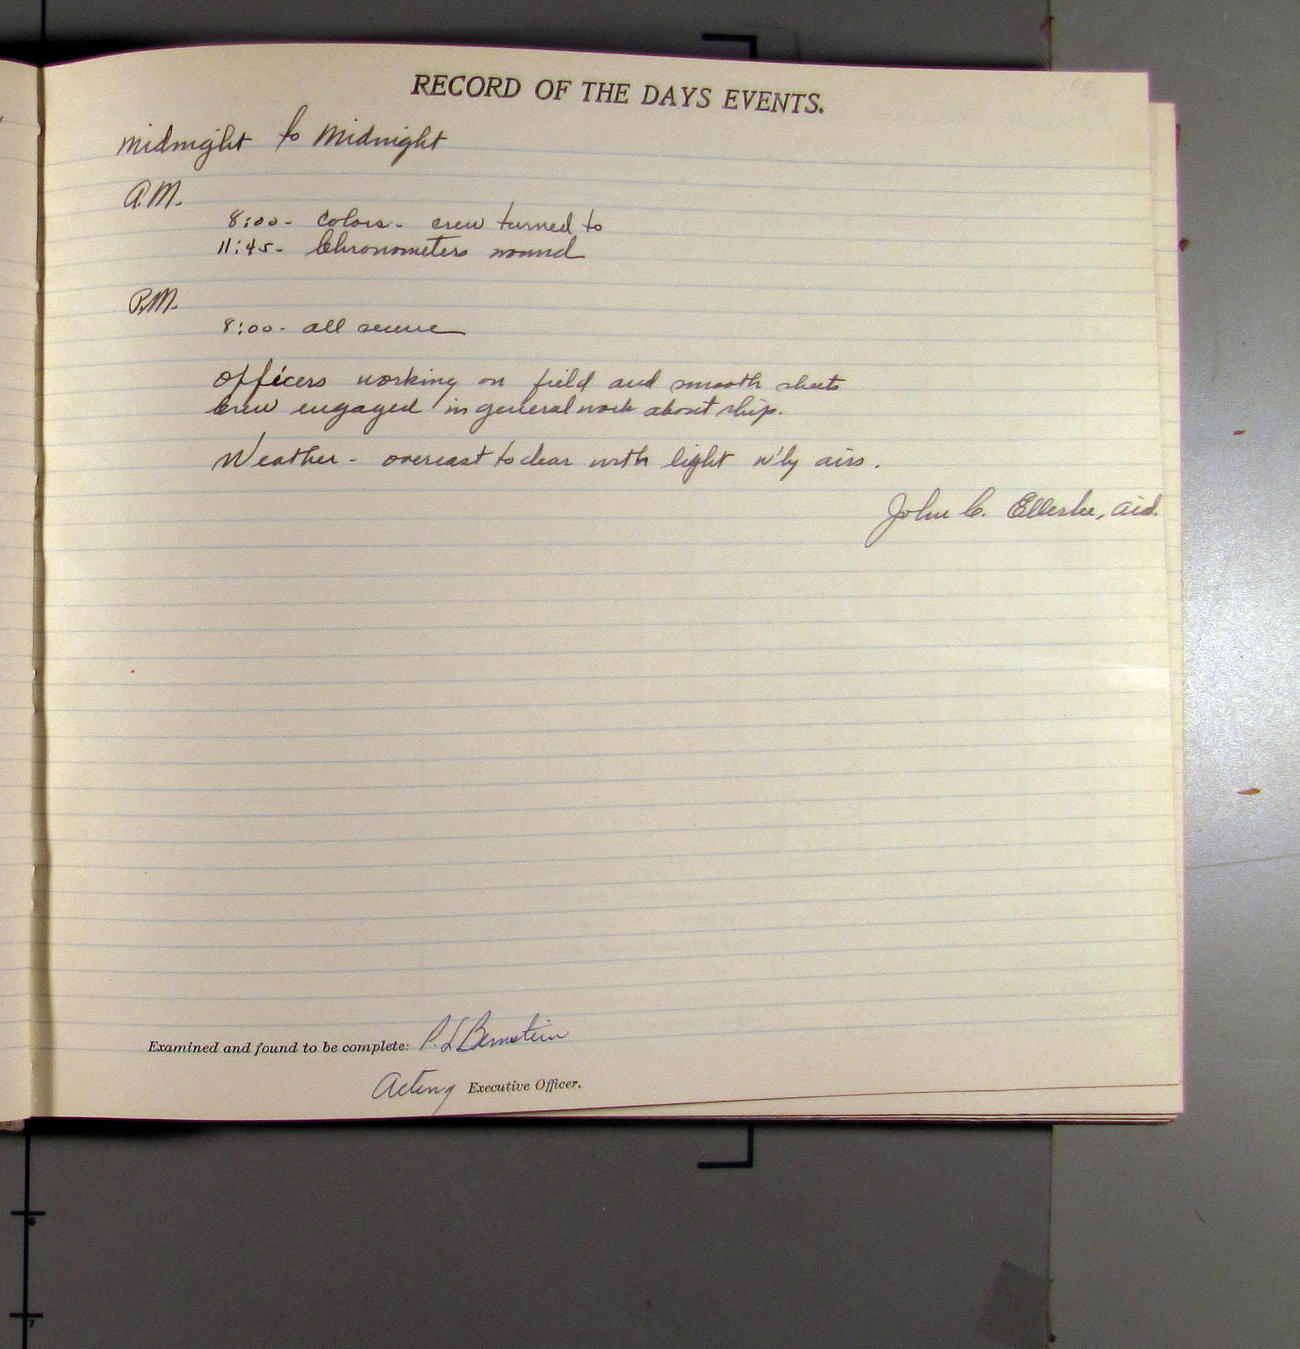 RECORD OF THE DAYS EVENTS.
Midnight to Midnight
A.M.
8:00- Colors- crew turned to
11:45- Chronometers wound
P.M.
8:00- all secure
Officers working on field and smooth sheets
Crew engaged in general work about ship.
Weather- overcast to clear with light w'ly airs.
John C. Ellerbe, aid.
Examined and found to be complete: P. L. Bernstein
Acting Executive Officer.
6
7